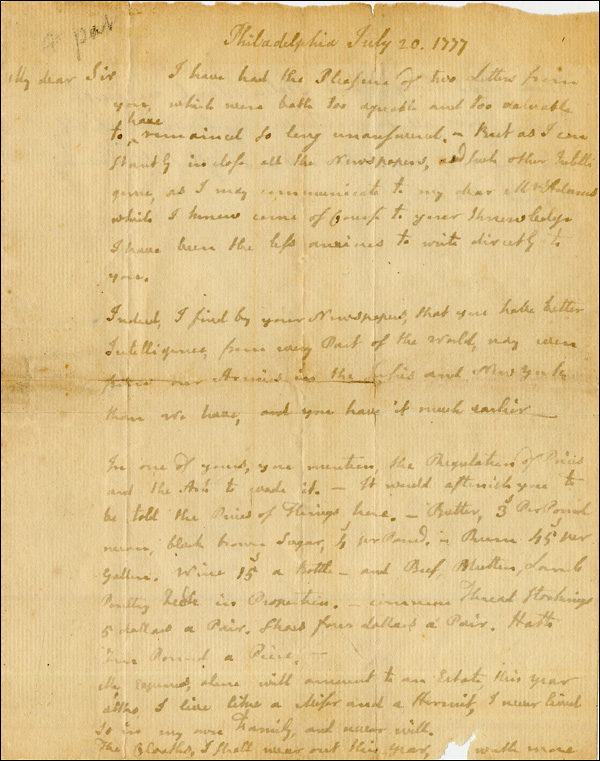 Philadelphia July 20. 1777
My dear Sir
I have had the Pleasure of two Letters from
you, which were both too agreable and too valuable
to have remained so long unanswered. - But as I con
stantly inclose all the Newspapers, and such other Intelli
gence, as I may communicate to my dear Mrs Adams
which I knew came of Course to your Knowledge
I have been the less anxious to write directly to
you.
Indeed, I find by your Newspapers, that you have better
Intelligence, from every Part of the World, nay even
from our Armies in the and New York
than we have, and you have it much earlier
In one of yours, you mention, the Regulation of Prices
and the Act to it. - It would astonish you to
be told the Prices of Things here. - Butter, 3s Per Pound
mean, black brown Sugar, 4s pr Pound. Rum 45s per
Gallon. Wine 15s a Bottle - and Beef, Mutton, Lamb
Poultry in Proportion. - common Thread Stockings
5 dollars a Pair. Shoes four dollars a Pair. Hatts
Pound a Piece, -
My Expences, alone will amount to an Estate, this year
altho I live like a Miser and a Hermit, I never lived
so in my own Family, and never will.
The Cloaths, I shall wear out this Year, worth more